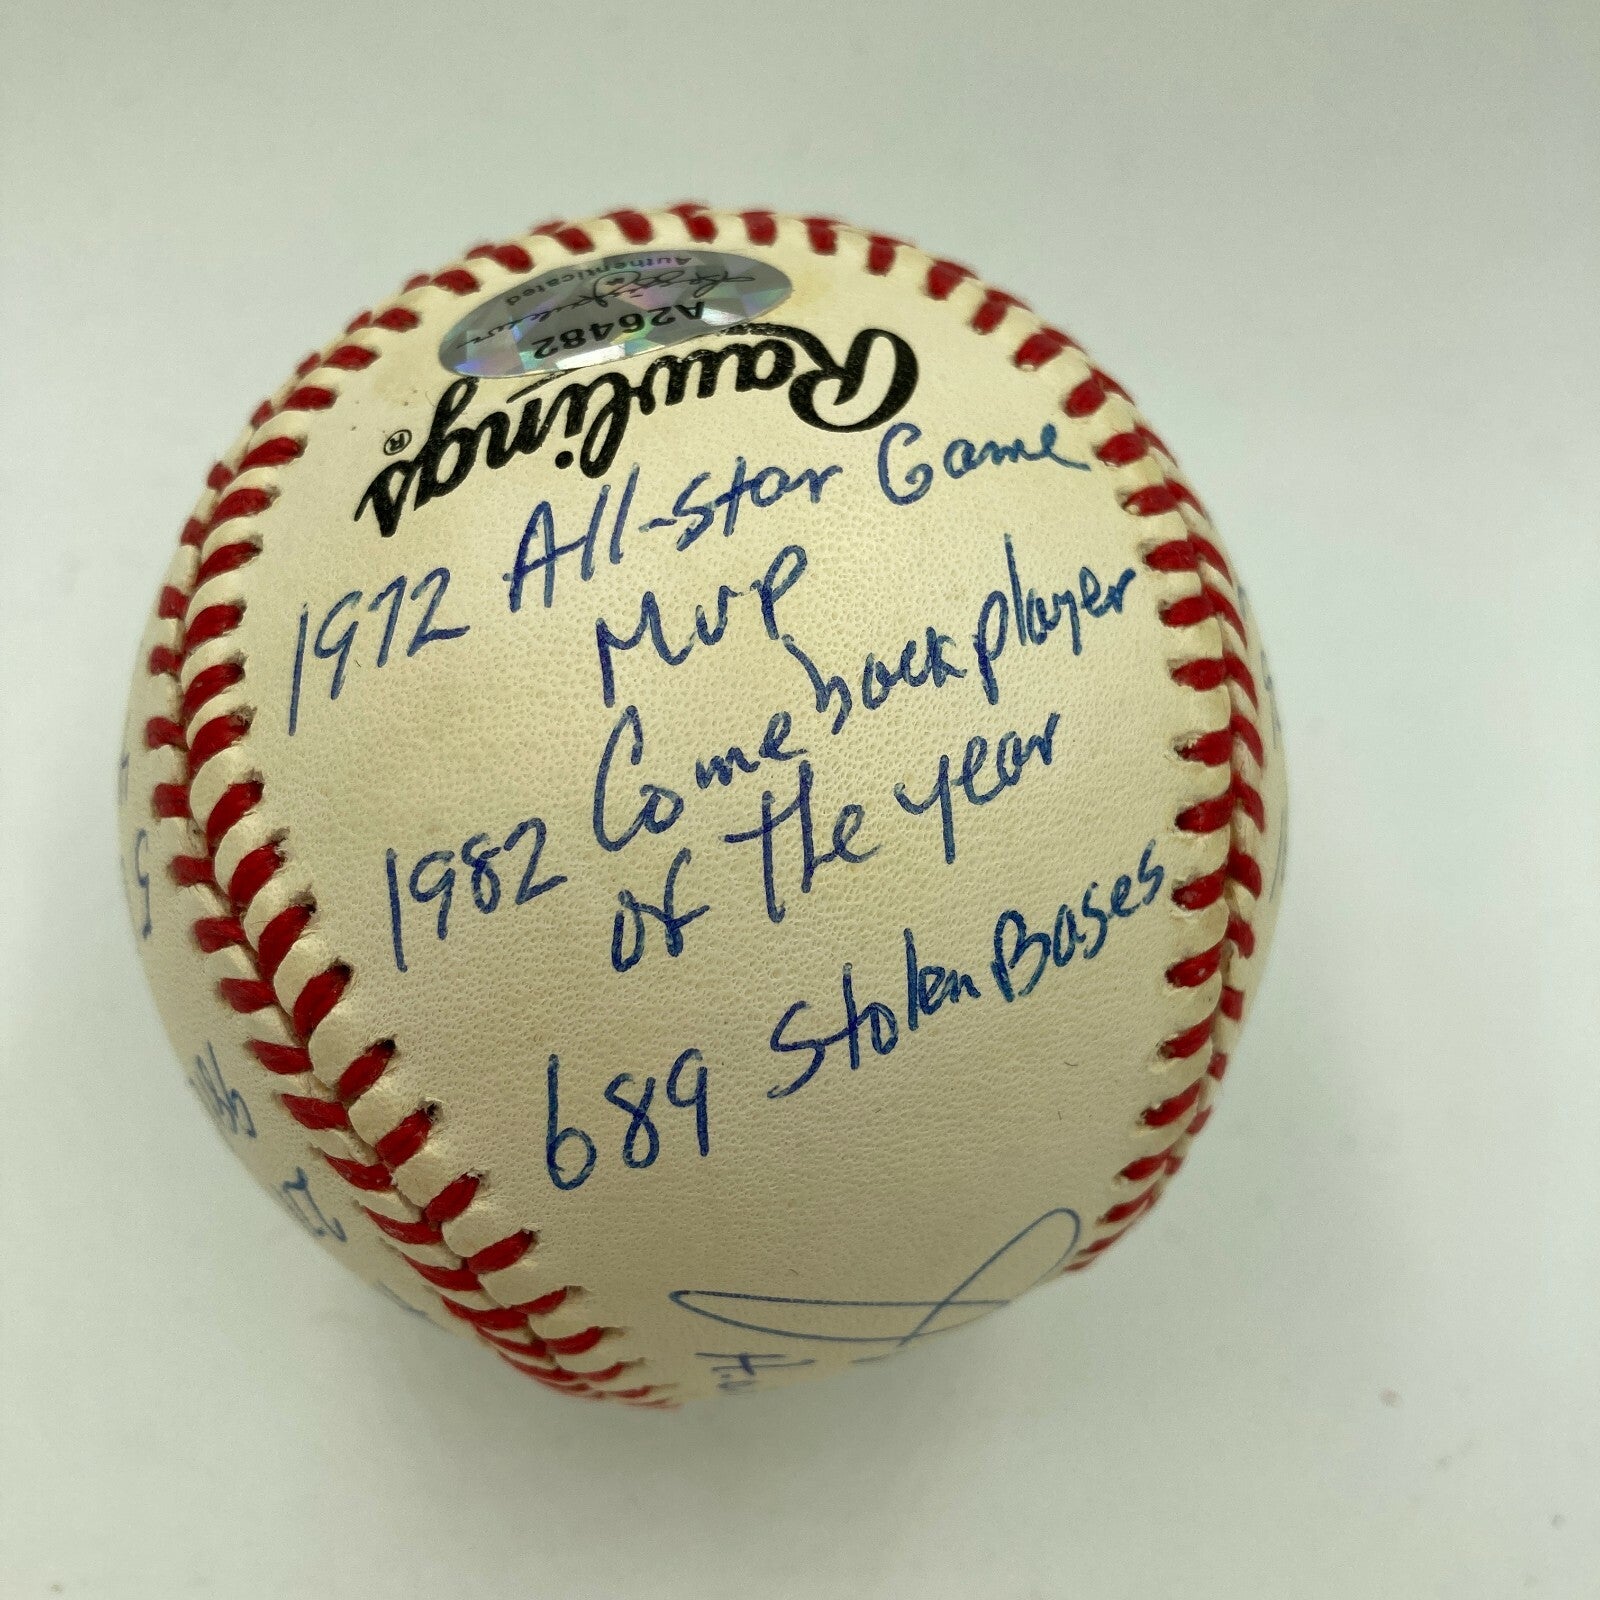 Authenticated
A26482
Rawlings®
1972 All-Star Game
MVP
1982 Comeback player
of the year
689 Stolen Bases